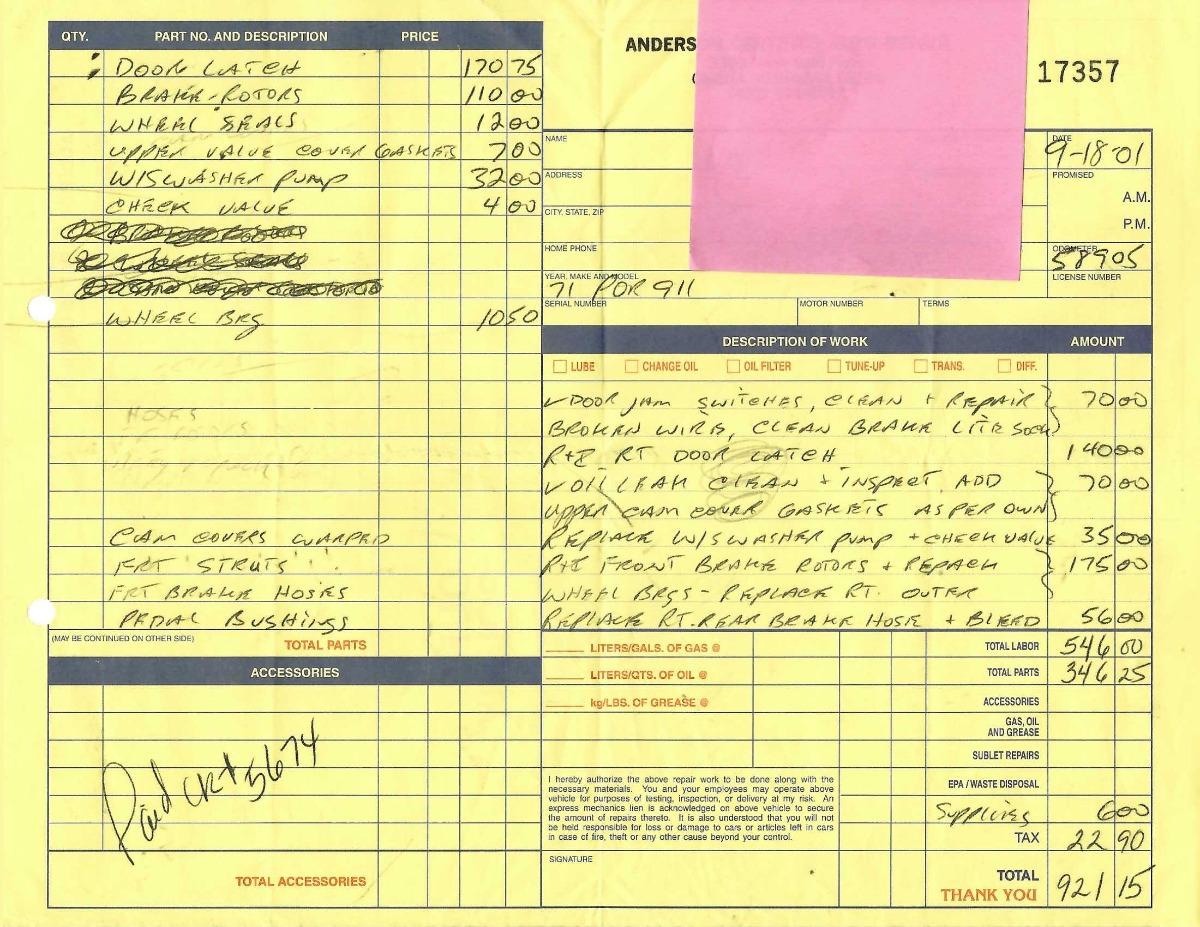 QTY. PART NO. AND DESCRIPTION PRICE
DOOR LATCH 170 75
BRAKE ROTORS 110 00
WHEEL SEALS 12 00
UPPER VALVE COVER GASKETS 7 00
W/SWASHER PUMP 32 00
CHECK VALVE 4 00
WHEEL BRG 10 50
HOSES
CAM COVERS WARPED
FRT STRUTS
FRT BRAKE HOSES
PEDAL BUSHINGS
(MAY BE CONTINUED ON OTHER SIDE)
TOTAL PARTS
ACCESSORIES
Paid CK# 5674
TOTAL ACCESSORIES
ANDERS
17357
NAME
DATE 9-18-01
ADDRESS
PROMISED
A.M.
CITY, STATE, ZIP
P.M.
HOME PHONE
ODOMETER 58905
YEAR, MAKE AND MODEL
71 POR 911
LICENSE NUMBER
SERIAL NUMBER MOTOR NUMBER TERMS
DESCRIPTION OF WORK AMOUNT
LUBE CHANGE OIL OIL FILTER TUNE-UP TRANS. DIFF.
✓DOOR JAM SWITCHES, CLEAN + REPAIR 70 00
BROKEN WIRE, CLEAN BRAKE LITE SOCK
R+R RT DOOR LATCH 140 00
✓OIL LEAK CLEAN + INSPECT. ADD 70 00
UPPER CAM COVER GASKETS AS PER OWN
REPLACE W/SWASHER PUMP + CHECK VALVE 35 00
R+R FRONT BRAKE ROTORS + REPACK 175 00
WHEEL BRGS - REPLACE RT. OUTER
REPLACE RT. REAR BRAKE HOSE + BLEED 56 00
LITERS/GALS. OF GAS @
TOTAL LABOR 546 00
LITERS/QTS. OF OIL @
TOTAL PARTS 346 25
kg/LBS. OF GREASE @
ACCESSORIES
GAS, OIL
AND GREASE
SUBLET REPAIRS
I hereby authorize the above repair work to be done along with the
necessary materials. You and your employees may operate above
vehicle for purposes of testing, inspection, or delivery at my risk. An
express mechanics lien is acknowledged on above vehicle to secure
the amount of repairs thereto. It is also understood that you will not
be held responsible for loss or damage to cars or articles left in cars
in case of fire, theft or any other cause beyond your control.
EPA / WASTE DISPOSAL
Supplies 6 00
TAX 22 90
SIGNATURE
TOTAL 921 15
THANK YOU